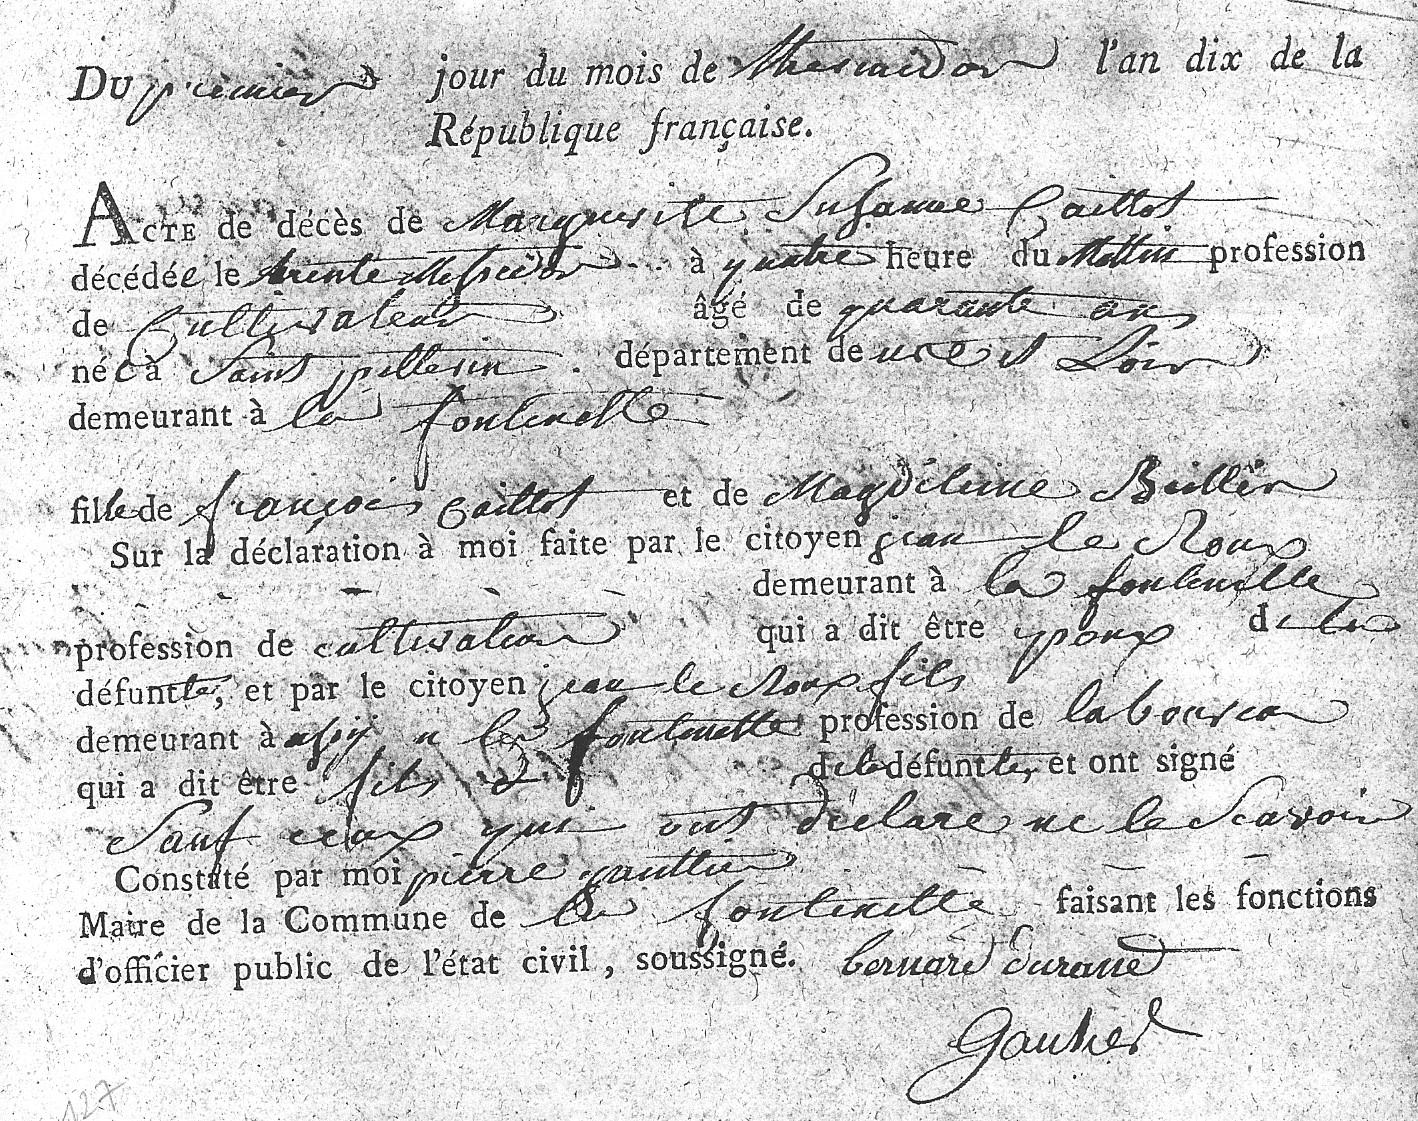 Du premier jour du mois de thermidor l'an dix de la
République française.
ACTE de décès de Marguerite Suzanne Caillot
décédée le trente Messidor à quatre heure du Mattin profession
de Cultivateur âgé de quarante ans
née à Saint pellerin département de ure et Loir
demeurant à la fontenelle
fille de françois Caillot et de Magdeleine
Sur la déclaration à moi faite par le citoyen jean le Roux
demeurant à la fontenelle
profession de cultivateur qui a dit être epoux de la
défuntte, et par le citoyen jean le Roux fils
demeurant à aussy a la fontenelle profession de laboureur
qui a dit être fils de la défuntte, et ont signé
Sauf ceux qui ont declare ne le Scavoir
Constaté par moi pierre gauttier
Maire de la Commune de la fontenelle faisant les fonctions
d'officier public de l'état civil, soussigné. bernard durand
Gautier
127